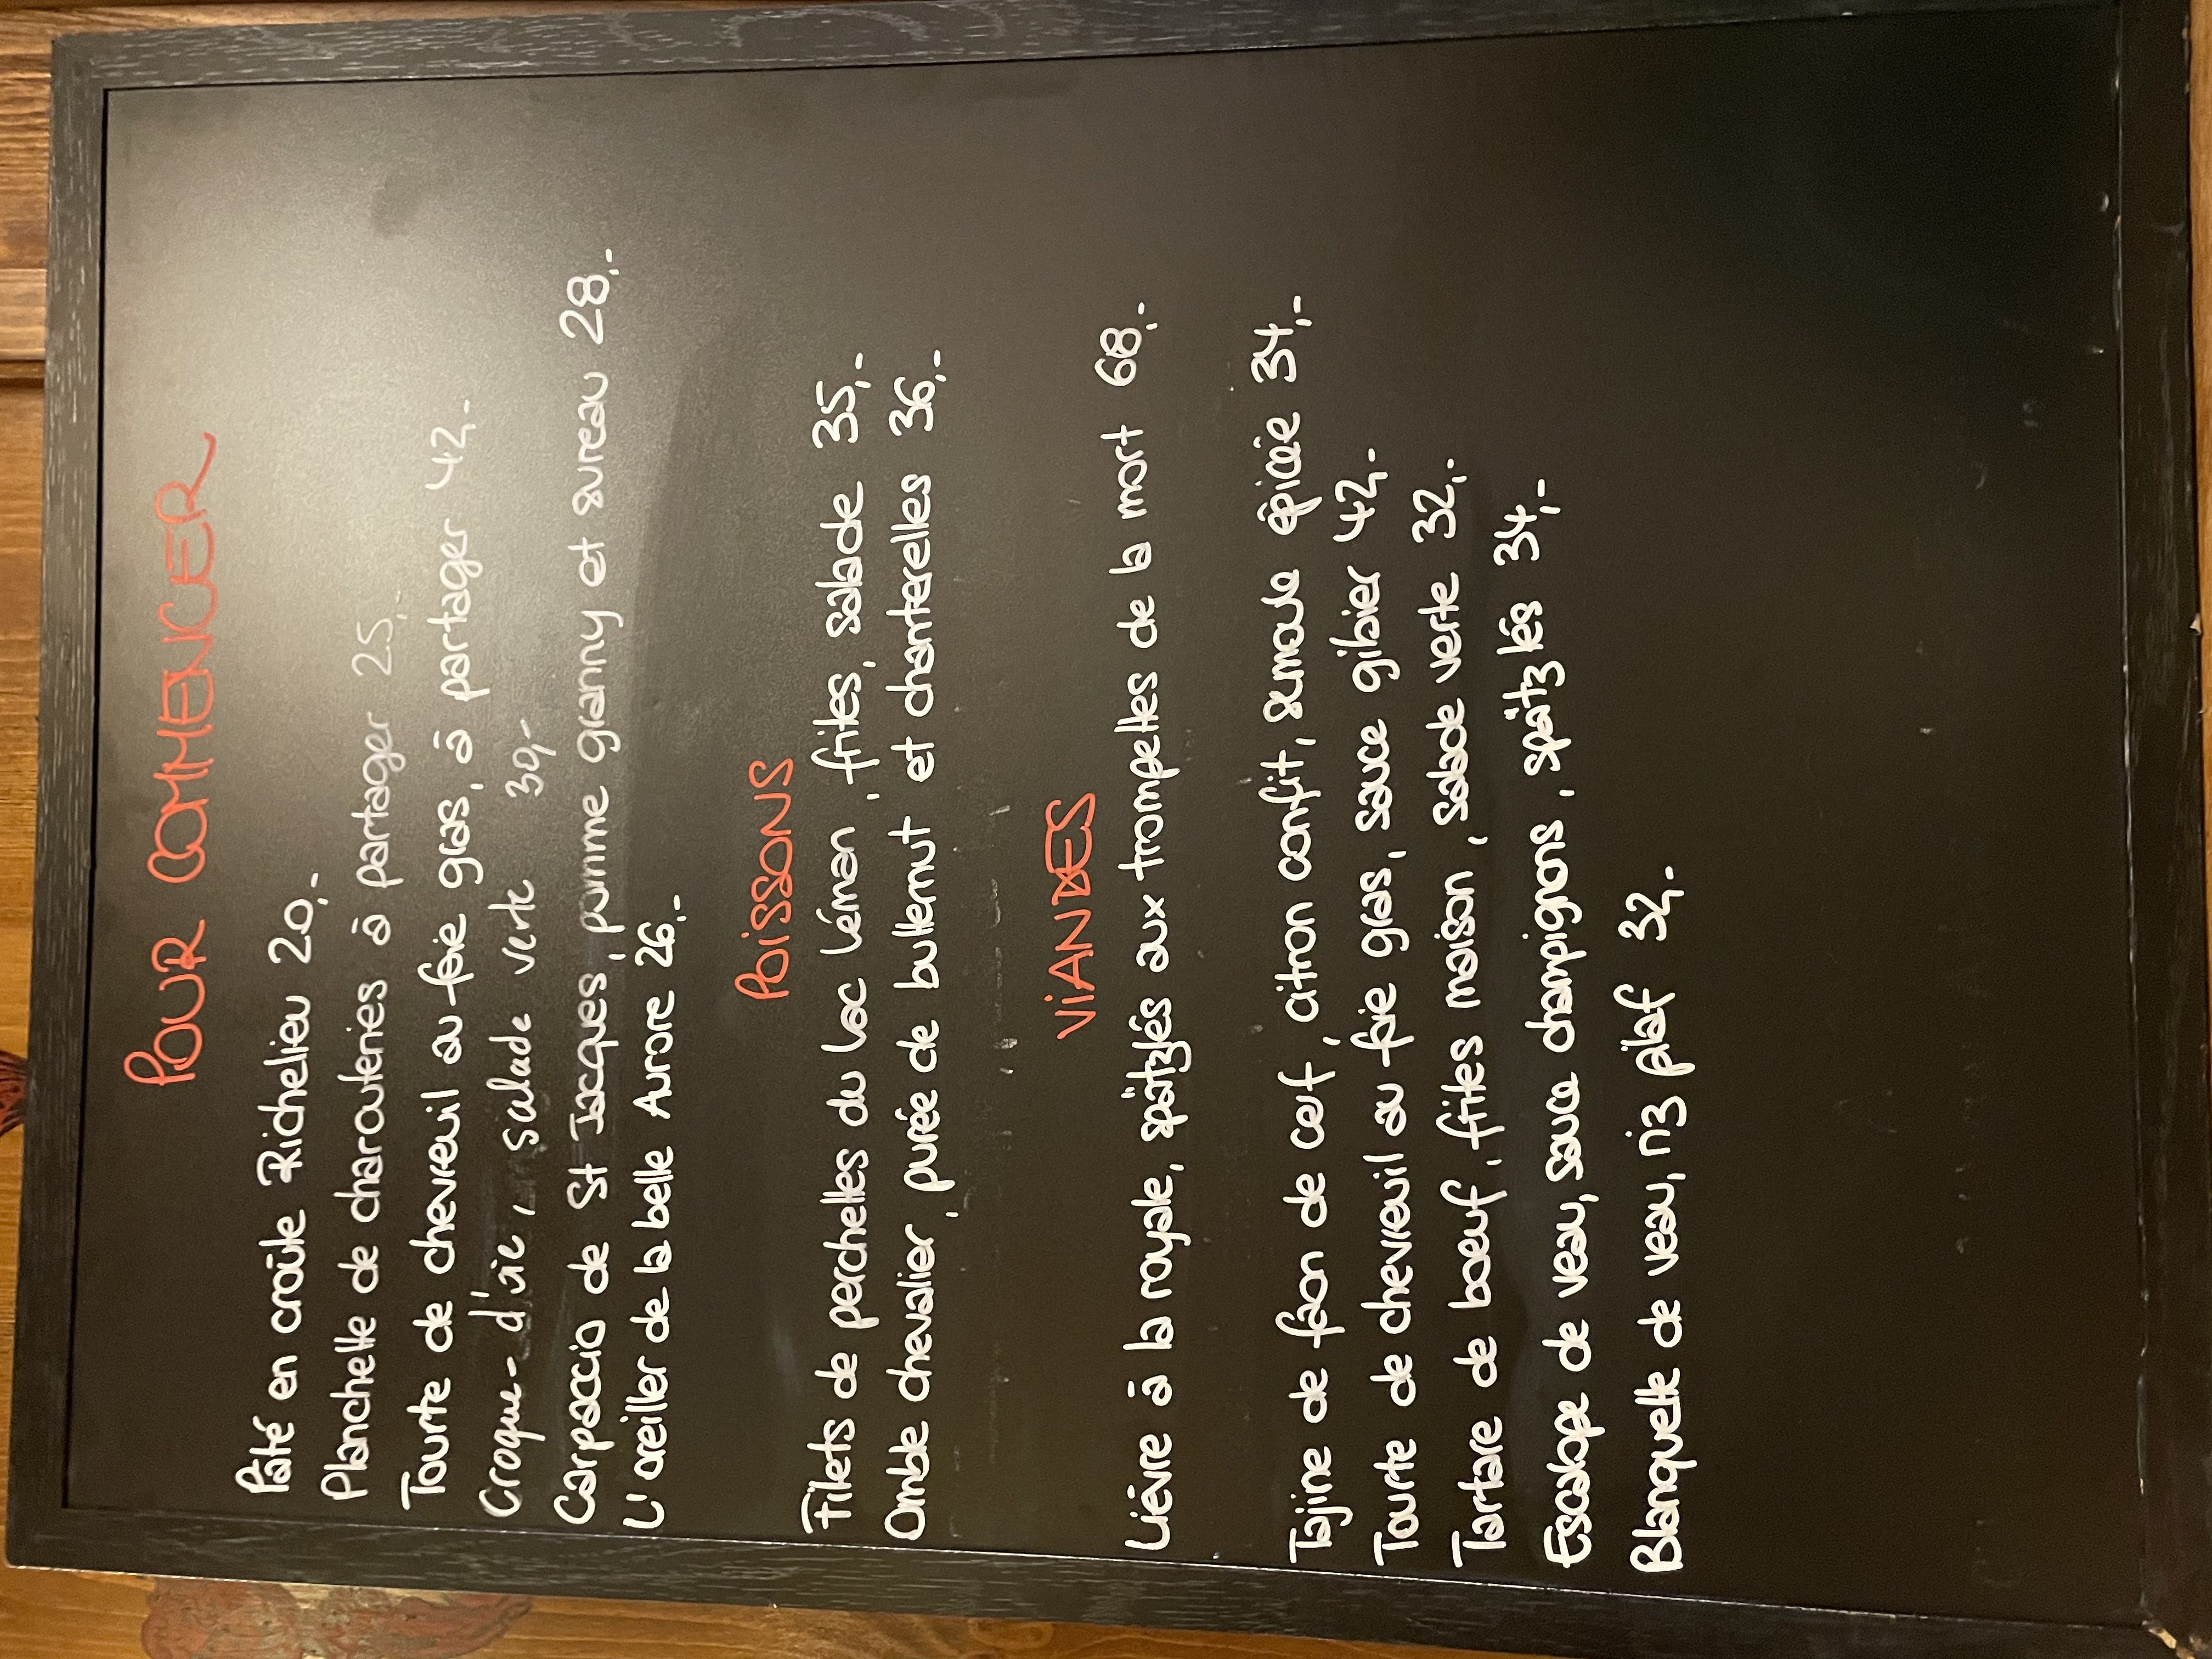 POUR COMMENCER
Pâté en croûte Richelieu 20,-
Planchette de charcuteries à partager 25,-
Tourte de chevreuil au foie gras, à partager 42,-
Croque-d'oie, salade verte 30,-
Carpaccio de St Jacques, pomme granny et sureau 28,-
L'oreiller de la belle Aurore 26,-
POISSONS
Filets de perchettes du lac Léman, frites, salade 35,-
Omble chevalier, purée de butternut et chanterelles 36,-
VIANDES
Lièvre à la royale, spätzlés aux trompettes de la mort 68,-
Tajine de faon de cerf, citron confit, semoule épicée 34,-
Tourte de chevreuil au foie gras, sauce gibier 42,-
Tartare de boeuf, frites maison, salade verte 32,-
Escalope de veau, sauce champignons, spätzlés 34,-
Blanquette de veau, riz pilaf 32,-